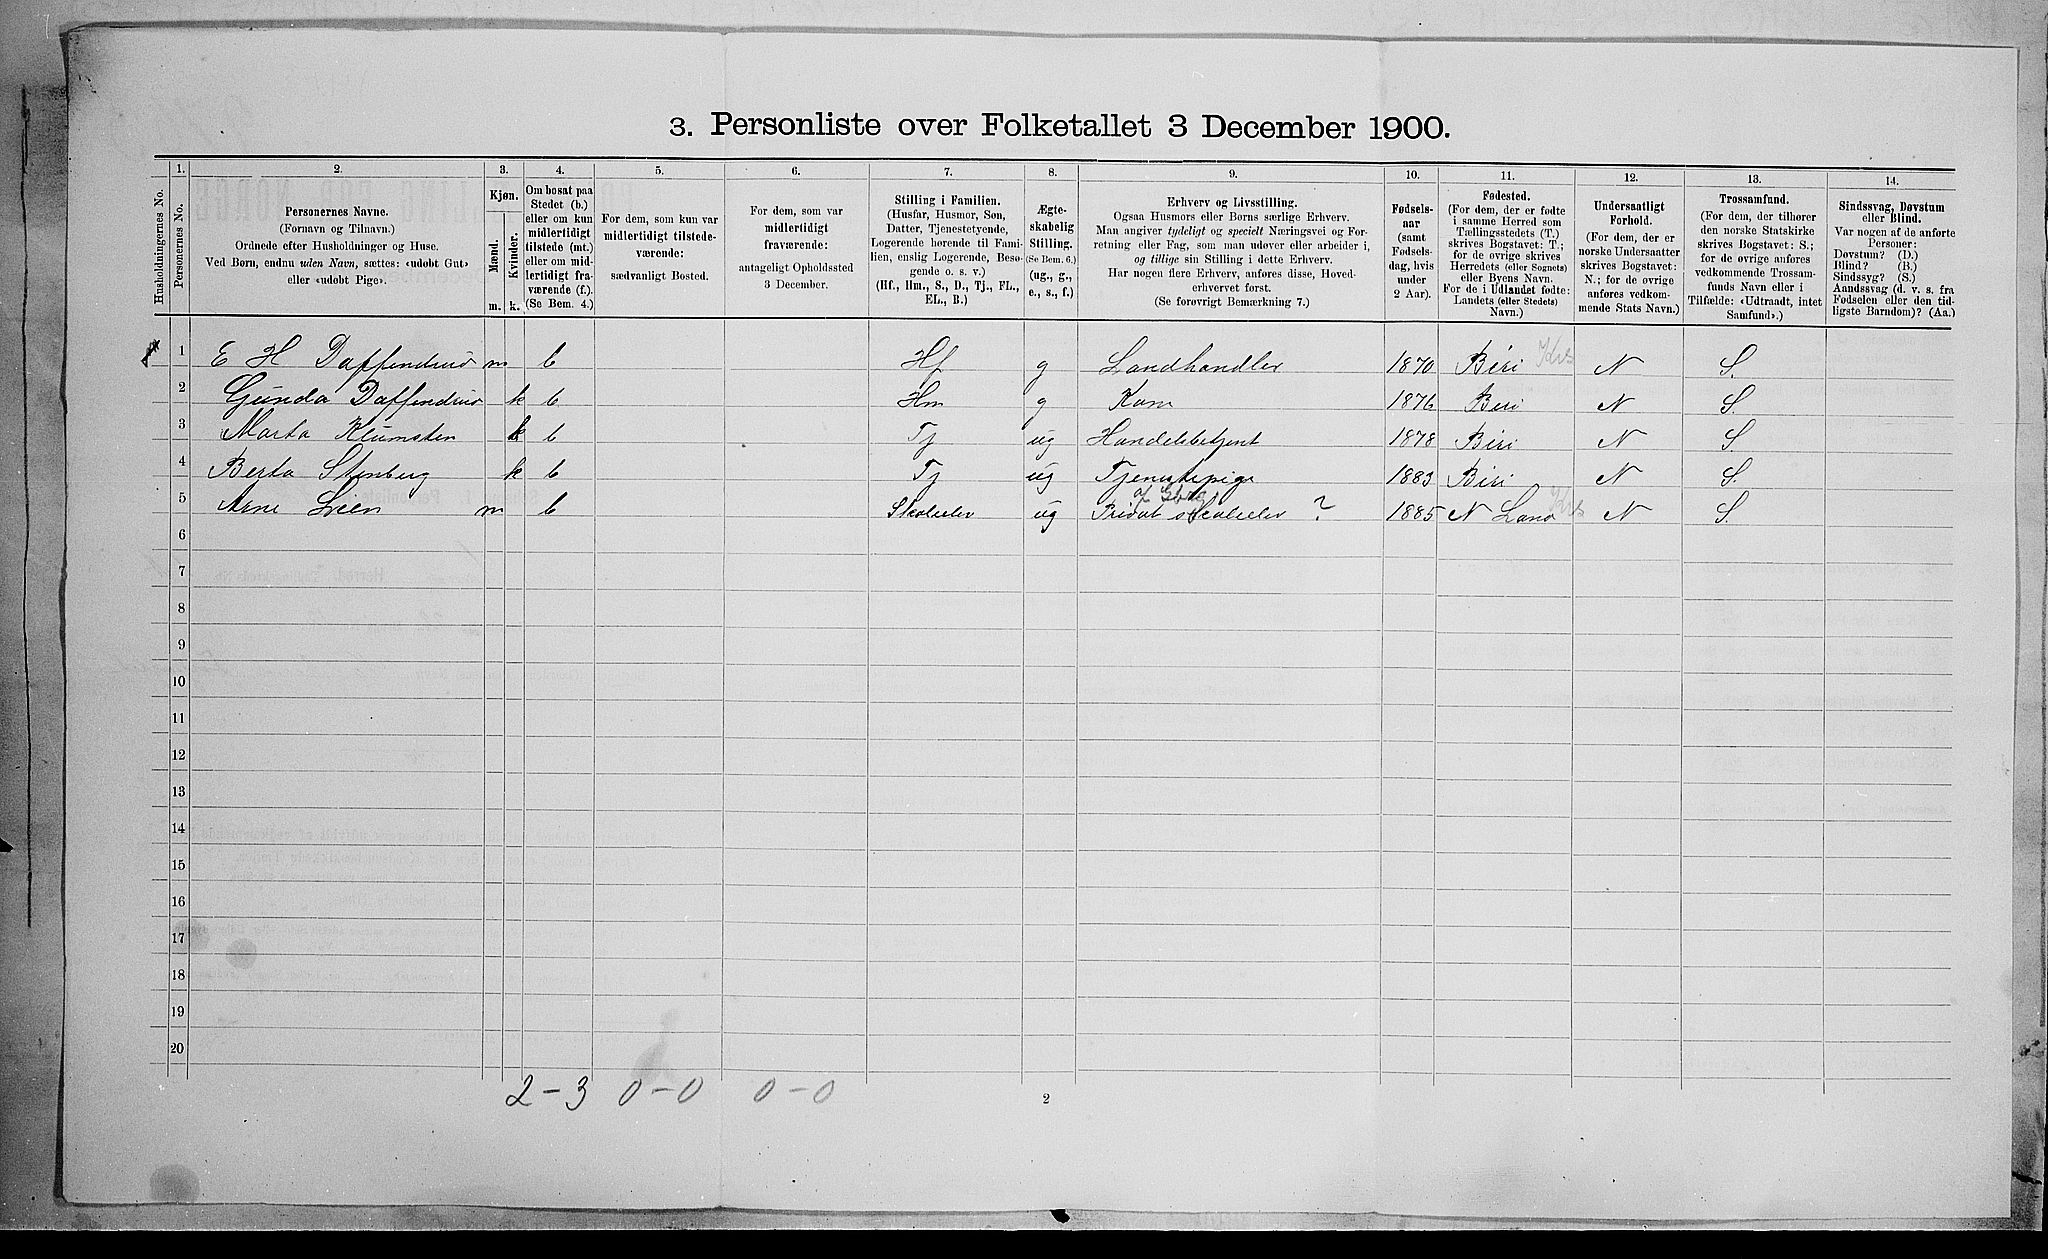 3. Personliste over Folketallet 3 December 1900.
1. 2. 3. 4. 5. 6. 7. 8. 9. 10. 11. 12. 13. 14.
Husholdningernes No.
Personernes No.
Personernes Navne.
(Fornavn og Tilnavn.)
Ordnede efter Husholdninger og Huse.
Ved Børn, endnu uden Navn, sættes: «udøbt Gut»
eller «udøbt Pige».
Kjøn.
Mænd.
Kvinder.
m. k.
Om bosat paa
Stedet (b.)
eller om kun
midlertidigt
tilstede (mt.)
eller om mid-
lertidigt fra-
værende (f.)
(Se Bem. 4.)
For dem, som kun var
midlertidigt tilstede-
værende:
sædvanligt Bosted.
For dem, som var
midlertidigt
fraværende:
antageligt Opholdssted
3 December.
Stilling i Familien.
(Husfar, Husmor, Søn,
Datter, Tjenestetyende,
Logerende hørende til Fami-
lien, enslig Logerende, Besø-
gende o. s. v.)
(Hf., Hm., S., D., Tj., FL.,
EL., B.)
Ægte-
skabelig
Stilling.
(Se Bem. 6.)
(ug., g.,
e., s., f.)
Erhverv og Livsstilling.
Ogsaa Husmors eller Børns særlige Erhverv.
Man angiver tydeligt og specielt Næringsvei og For-
retning eller Fag, som man udøver eller arbeider i,
og tillige sin Stilling i dette Erhverv.
Har nogen flere Erhverv, anføres disse, Hoved-
erhvervet først.
(Se forøvrigt Bemærkning 7.)
Fødsels-
aar
(samt
Fødsels-
dag, hvis
under
2 Aar).
Fødested.
(For dem, der er fødte
i samme Herred som
Tællingsstedets (T.)
skrives Bogstavet: T.;
for de øvrige skrives
Herredets (eller Sognets)
eller Byens Navn.
For de i Udlandet fødte:
Landets (eller Stedets)
Navn.)
Undersaatligt
Forhold.
(For dem, der er
norske Undersaatter
skrives Bogstavet:
N.; for de øvrige
anføres vedkom-
mende Stats Navn.)
Trossamfund.
(For dem, der tilhører
den norske Statskirke
skrives Bogstavet: S.;
for de øvrige anføres
vedkommende Trossam-
funds Navn eller i
Tilfælde: «Udtraadt, intet
Samfund».)
Sindssvag, Døvstum
eller Blind.
Var nogen af de anførte
Personer:
Døvstum? (D.)
Blind? (B.)
Sindssyg? (S.)
Aandssvag (d. v. s. fra
Fødselen eller den tid-
ligste Barndom)? (Aa.)
1 E H Daffendrud m b Hf g Landhandler 1870 Biri Krs N S.
2 Gunda Daffendrud k b Hm g Kone 1876 Biri N S.
3 Marta Klumsten k b Tj ug Handelsbetjent 1878 Biri N S.
4 Berta Stenberg k b Tj ug Tjenestepige 1883 Biri N S.
5 Arne Lien m b Skoleelev ug Privat Skoleelev ? 1885 N Land Krs N S.
6
7
8
9
10
11
12
13
14
15
16
17
18
19
20
2-3 0-0 0-0
2